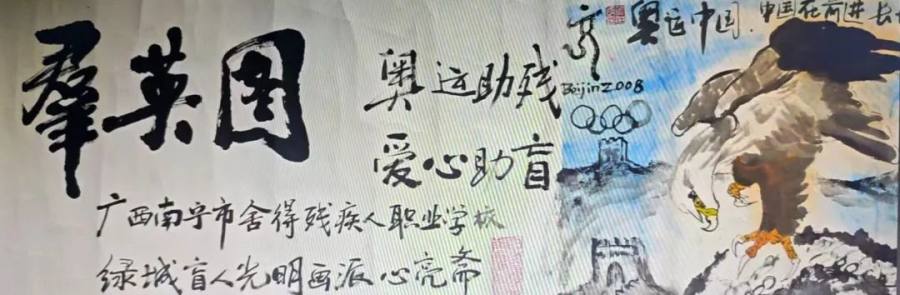 羣英图
奥运助残
爱心助盲
广西南宁市舍得残疾人职业学校
绿城盲人光明画派心亮斋
Beijin2008
奥运中国.中国在前进